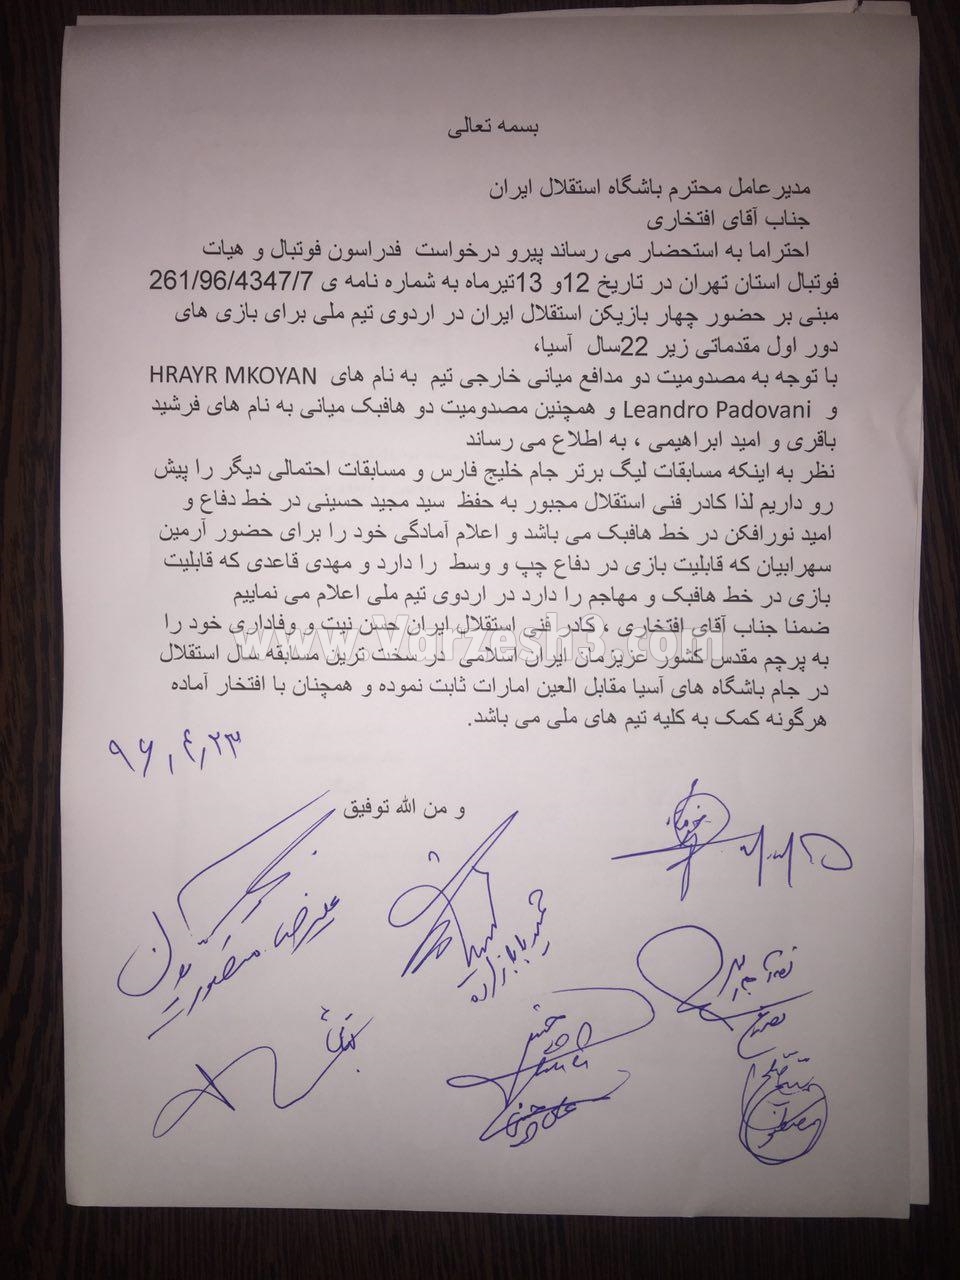 بسمه تعالی
مدیرعامل محترم باشگاه استقلال ایران
جناب آقای افتخاری
احتراما به استحضار می رساند پیرو درخواست فدراسون فوتبال و هیات
فوتبال استان تهران در تاریخ 12و 13تیرماه به شماره نامه ی 261/96/4347/7
مبنی بر حضور چهار بازیکن استقلال ایران در اردوی تیم ملی برای بازی های
دور اول مقدماتی زیر 22سال آسیا،
با توجه به مصدومیت دو مدافع میانی خارجی تیم به نام های HRAYR MKOYAN
و Leandro Padovani و همچنین مصدومیت دو هافبک میانی به نام های فرشید
باقری و امید ابراهیمی ، به اطلاع می رساند
نظر به اینکه مسابقات لیگ برتر جام خلیج فارس و مسابقات احتمالی دیگر را پیش
رو داریم لذا کادر فنی استقلال مجبور به حفظ سید مجید حسینی در خط دفاع و
امید نورافکن در خط هافبک می باشد و اعلام آمادگی خود را برای حضور آرمین
سهرابیان که قابلیت بازی در دفاع چپ و وسط را دارد و مهدی قاعدی که قابلیت
بازی در خط هافبک و مهاجم را دارد در اردوی تیم ملی اعلام می نماییم
ضمنا جناب آقای افتخاری ، کادر فنی استقلال ایران حسن نیت و وفاداری خود را
www.Varzesh3.com
به پرچم مقدس کشور عزیزمان ایران اسلامی در سخت ترین مسابقه سال استقلال
در جام باشگاه های آسیا مقابل العین امارات ثابت نموده و همچنان با افتخار آماده
هرگونه کمک به کلیه تیم های ملی می باشد.
۹۶/۴/۲۳
و من الله توفیق
علیرضا منصوریان
حمید بابازاده